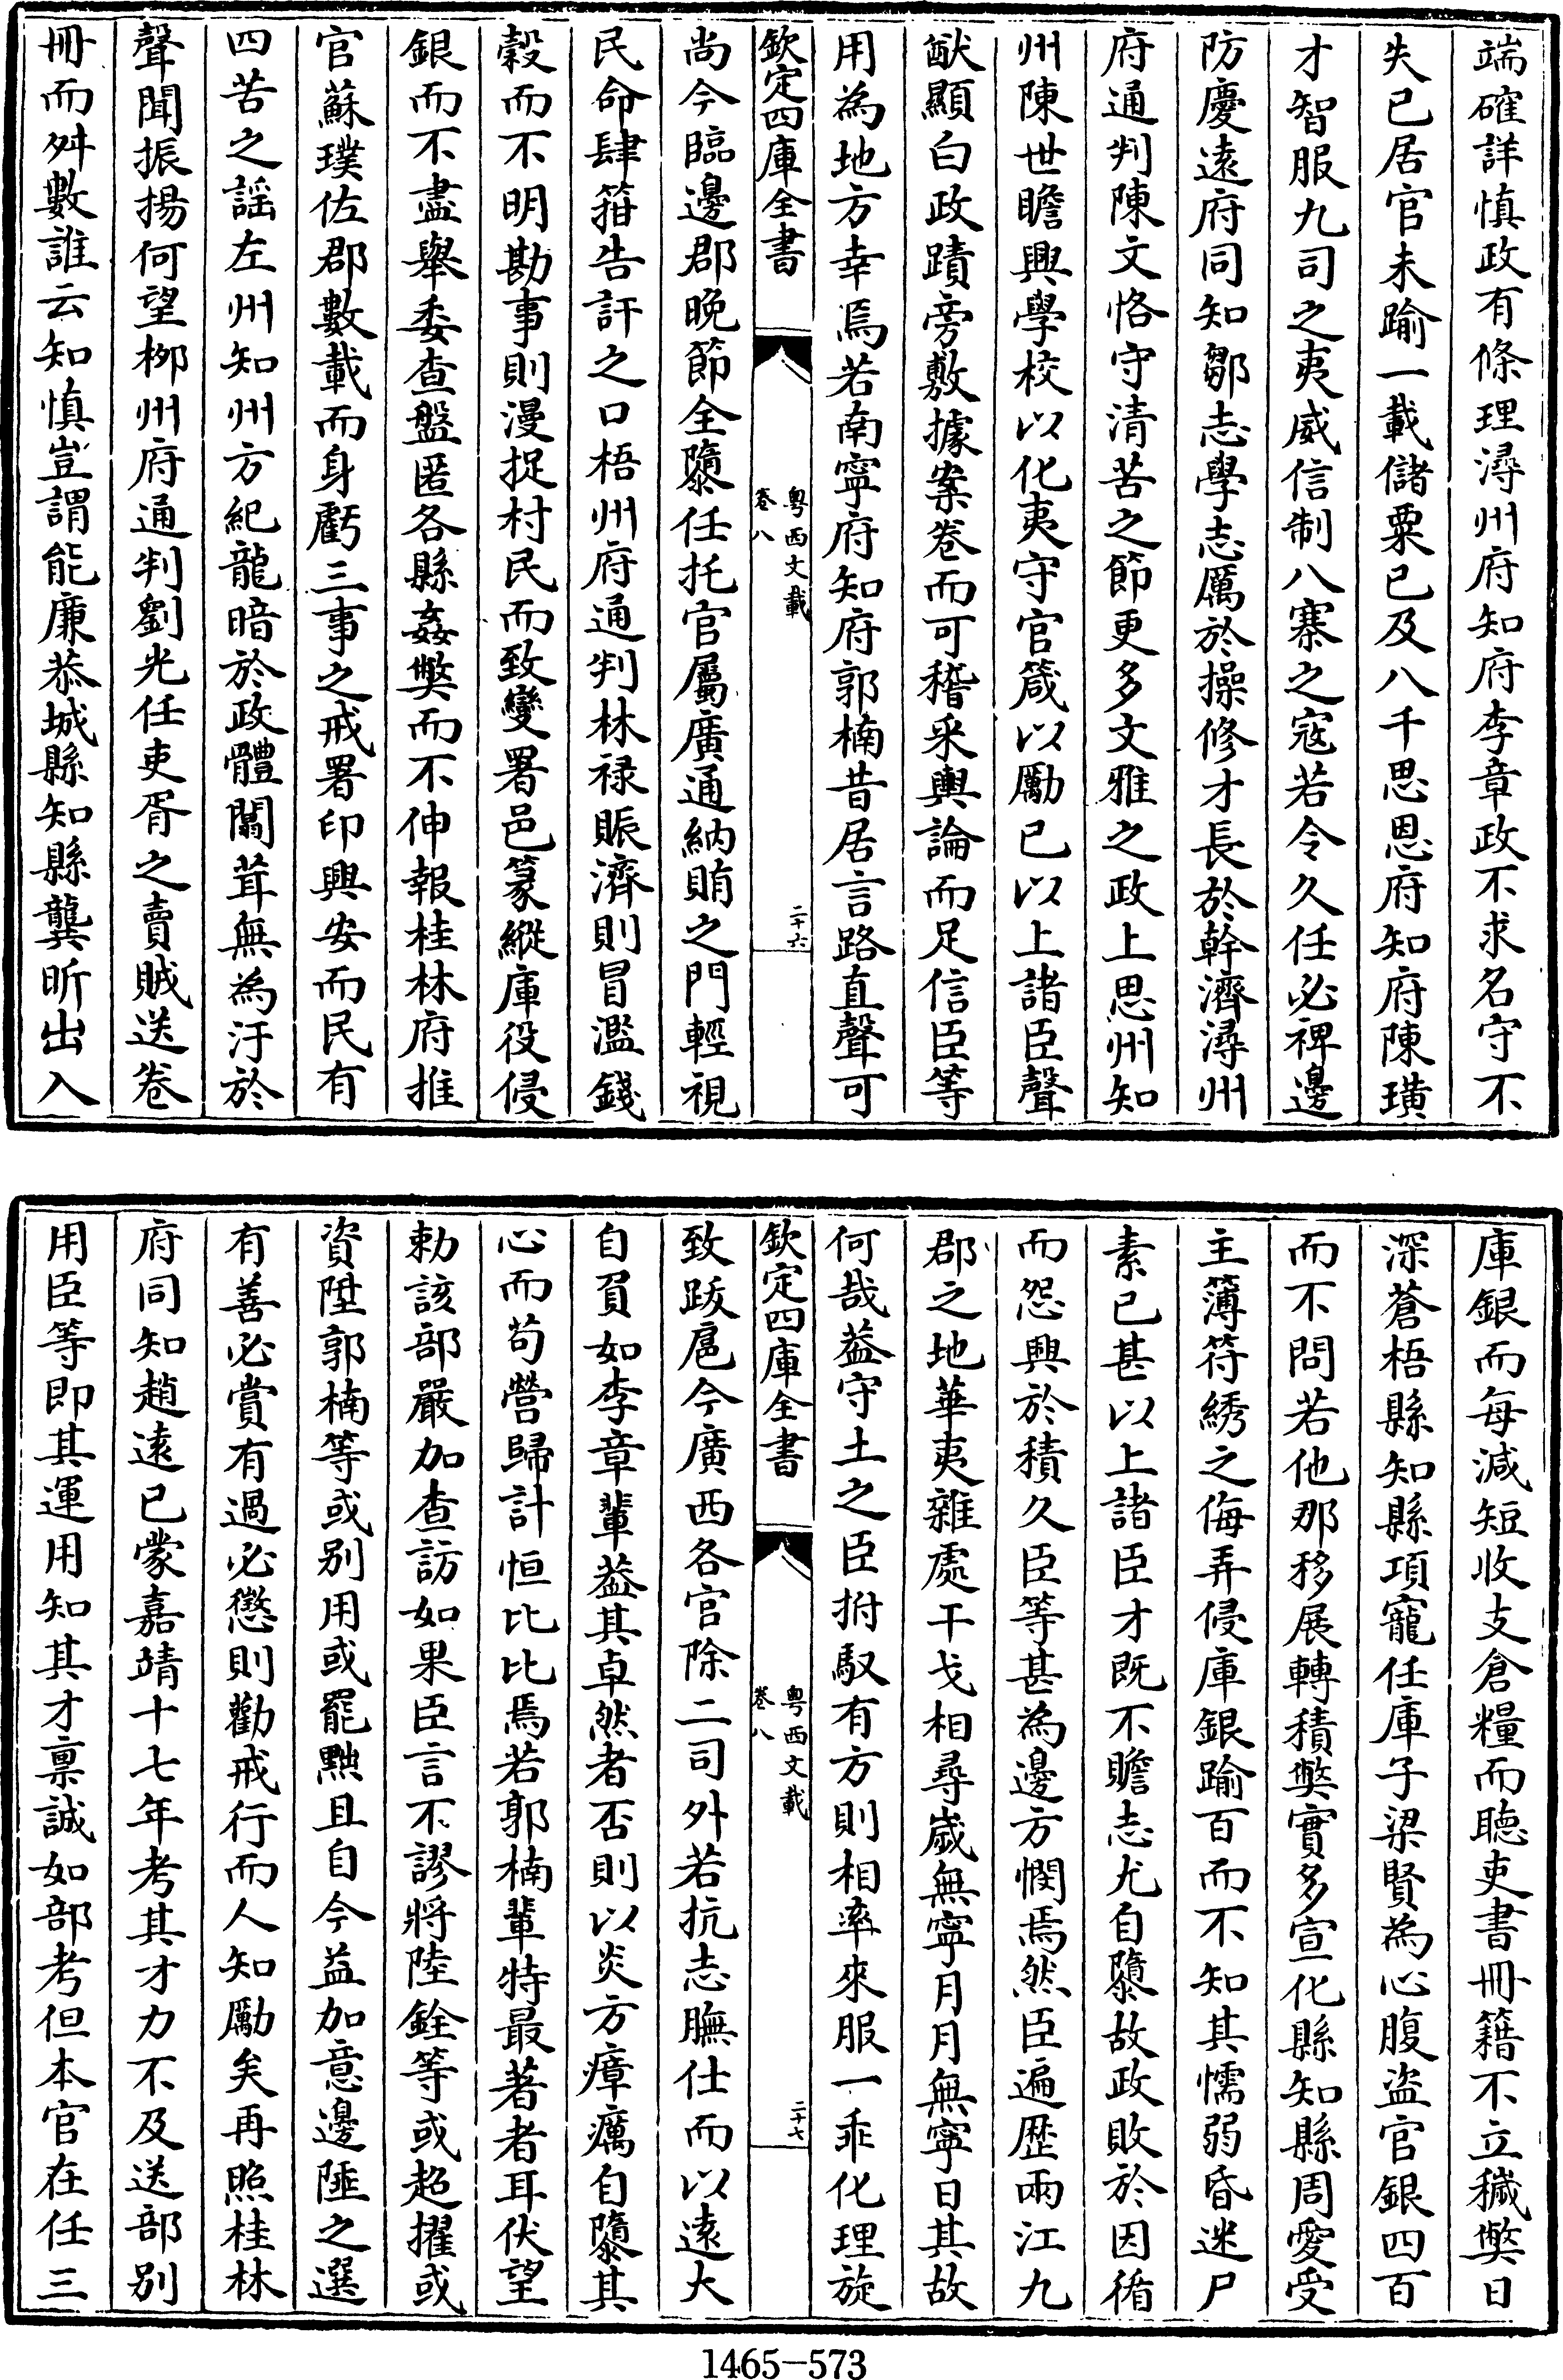 端確詳慎政有條理潯州府知府李章政不求名守不
失已居官未踰一載儲粟已及八千思恩府知府陳璜
才智服九司之夷威信制八寨之寇若令久任必裨邊
防慶遠府同知鄒志學志厲於操修才長於幹濟潯州
府通判陳文恪守清苦之節更多文雅之政上思州知
州陳世瞻興學校以化夷守官箴以勵已以上諸臣聲
猷顯白政蹟旁敷據案卷而可稽采輿論而足信臣等
用為地方幸焉若南寧府知府郭楠昔居言路直聲可
欽定四庫全書
粵西文載
卷八
二十六
尚今臨邊郡晚節全隳任托官屬廣通納賄之門輕視
民命肆箝告訐之口梧州府通判林禄賑濟則冒濫錢
穀而不明勘事則漫捉村民而致變署邑篆縱庫役侵
銀而不盡舉委查盤匿各縣姦弊而不伸報桂林府推
官蘇璞佐郡數載而身虧三事之戒署印興安而民有
四苦之謡左州知州方紀龍暗於政體闒茸無為汙於
聲聞振揚何望栁州府通判劉光任吏胥之賣賊送卷
冊而舛數誰云知慎豈謂能廉恭城縣知縣龔昕出入
庫銀而每減短收支倉糧而聴吏書冊籍不立穢弊日
深蒼梧縣知縣項寵任庫子梁賢為心腹盜官銀四百
而不問若他那移展轉積弊實多宣化縣知縣周愛受
主簿符綉之侮弄侵庫銀踰百而不知其懦弱昏迷尸
素已甚以上諸臣才既不瞻志尤自隳故政敗於因循
而怨興於積久臣等甚為邊方憫焉然臣遍歴兩江九
郡之地華夷雜處干戈相尋歲無寧月月無寧日其故
何哉葢守土之臣拊馭有方則相率來服一乖化理旋
欽定四庫全書
粵西文載
卷八
二十七
致跋扈今廣西各官除二司外若抗志膴仕而以遠大
自負如李章輩葢其卓然者否則以炎方瘴癘自隳其
心而苟營歸計恒比比焉若郭楠輩特最著者耳伏望
勅該部嚴加查訪如果臣言不謬將陸銓等或超擢或
資陞郭楠等或別用或罷黜且自今益加意邊陲之選
有善必賞有過必懲則勸戒行而人知勵矣再照桂林
府同知趙遠已蒙嘉靖十七年考其才力不及送部別
用臣等即其運用知其才禀誠如部考但本官在任三
1465-573